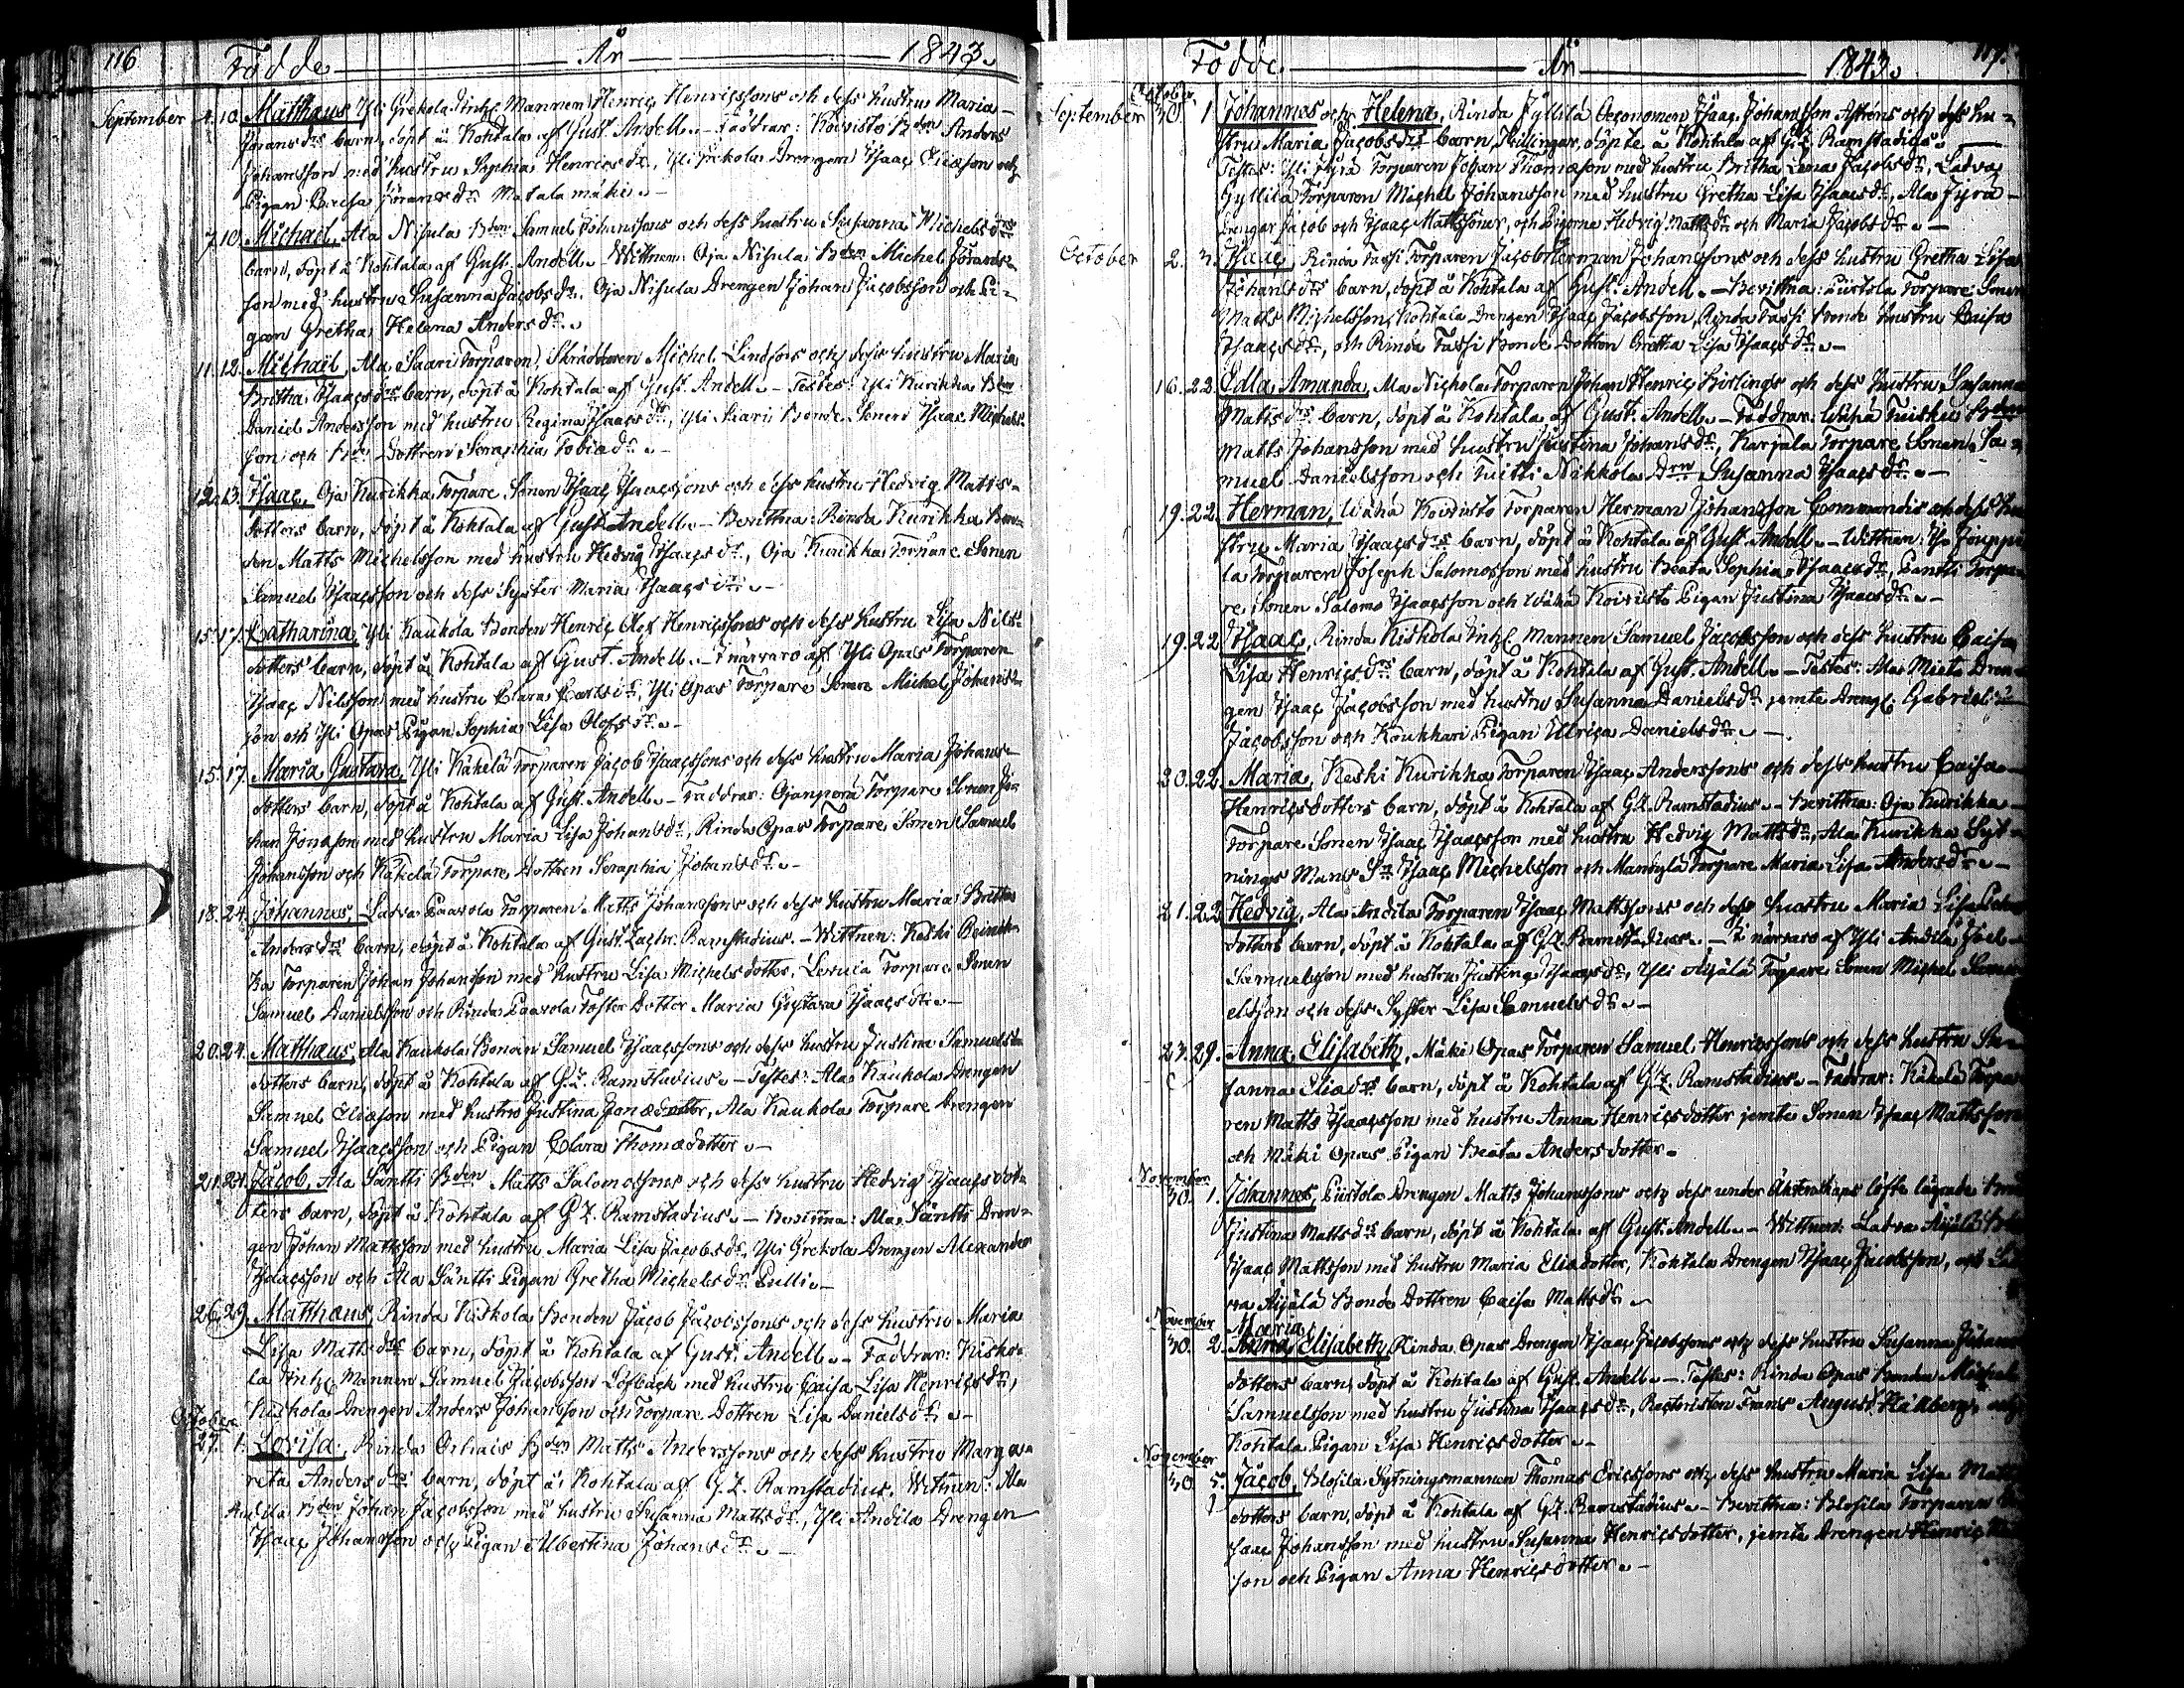 116 Födde År 1843.
September 4. 10. Matthæus, Yli Grekola Inhs Mannen Henric Henricssons och dess hustru Maria
Jörans drs barn, döpt å Kohtala af Gust. Andell. – Faddrar: Koivisto Bden Anders
Johansson med hustru Sophia Henrics dr, Yli Grekola Drengen Isaac Eliæson och
Pigan Caisa Jörans dr Matala mäki. –
7. 10. Michael, Ala Nisula Bden Samuel Johanssons och dess hustru Susanna Michels drs
barn, döpt å Kohtala af Gust. Andell. – Wittnen: Oja Nisula Bden Michel Jörans-
son med hustru Susanna Jacobs dr. Oja Nisula Drengen Johan Jacobsson och Pi-
gan Gretha Helena Anders dr. –
11. 12. Michael, Ala Saari Torparen, Skräddaren Michel Lindfors och dess hustru Maria
Britha Isaacs drs barn, döpt å Kohtala af Gust. Andell. – Testes: Yli Kurikka Bden
Daniel Andersson med hustru Regina Isaacs dr, Yli Saari Bonde Sonen Isaac Michels-
son och Bde Dottren Seraphia Tobiæ dr. –
12. 13. Isaac, Oja Kurikka Torpare Sonen Isaac Isaacssons och dess hustru Hedvig Matts-
dotters barn, döpt å Kohtala af Gust. Andell. – Bevittna: Rinda Kurikka Bon-
den Matts Michelsson med hustru Hedvig Isaacs dr, Oja Kurikka Torpare Sonen
Samuel Isaacsson och dess Syster Maria Isaacs dr. –
15. 17. Catharina, Yli Kaukola Bonden Henric Olof Henricssons och dess hustru Lisa Nils-
dotters barn, döpt å Kohtala af Gust. Andell. – I närvaro af Yli Opas Torparen
Isaac Nilsson med hustru Clara Carls dr, Yli Opas Torpare Sonen Michel Johans-
son och Yli Opas Pigan Sophia Lisa Olofs dr. –
15. 17. Maria Gustava, Yli Käkelä Torparen Jacob Isaacssons och dess hustru Maria Johans
dotters barn, döpt å Kohtala af Gust. Andell. – Faddrar: Ojanperä Torpare Sonen Jo-
han Jonæson med hustru Maria Lisa Johans dr, Rinda Opas Torpare Sonen Samuel
Johansson och Käkelä Torpare Dottren Seraphia Johans dr. –
18. 24. Johannes, Latva Paavola Torparen Matts Johanssons och dess hustru Maria Britha
Anders drs barn, döpt å Kohtala af Gust. Zachr. Ramstadius. – Wittnen: Keski Reinik-
ka Torparen Johan Johansson med hustru Lisa Michelsdotter, Torpare Sonen
Samuel Danielsson och Rinda Paavola Foster Dotter Maria Gustava Isaacs dr. –
20. 24. Matthæus, Ala Kaukola Bonden Samuel Isaacssons och dess hustru Justina Samuels
dotters barn, döpt å Kohtala af G. Z. Ramstadius. – Testes: Ala Kaukola Drengen
Samuel Eliæson med hustru Justina Jonædotter, Ala Kaukola Torpare Drengen
Samuel Isaacsson och Pigan Clara Thomædotter. –
21. 24. Jacob, Ala Säntti Bden Matts Salomossons och dess hustru Hedvig Isaacsdot-
ters barn, döpt å Kohtala af G. Z. Ramstadius. – Bevittna: Ala Säntti Dren-
gen Johan Mattsson med hustru Maria Lisa Jacobs dr, Yli Grekola Drengen Alexander
Isaacsson och Ala Säntti Pigan Gretha Michels dr Pulli. –
26. 29. Matthæus, Rinda Kiskola Bonden Jacob Jacobssons och dess hustru Maria
Lisa Matts drs barn, döpt å Kohtala af Gust. Andell. – Faddrar: Kisko-
la Inhs Mannen Samuel Jacobsson Löfback med hustru Caisa Lisa Henrics dr,
Kiskola Drengen Anders Johansson och Torpare Dottren Lisa Daniels dr. –
October
27. 1. Lovisa, Rinda Orhais Bden Matts Anderssons och dess hustru Marga-
reta Anders drs barn, döpt å Kohtala af G. Z. Ramstadius. Wittnen: Ala
Andila Bden Johan Jacobsson med hustru Susanna Matts dr, Yli Andila Drengen
Isaac Johansson och Pigan Albertina Johans dr. –
Födde År 1843. 117.
October
September 30. 1. Johannes och Helena, Rinda Jyllilä Oeconomen Isaac Johansson Aströns och dess hu-
stru Maria Jacobs drs barn, Tvillingar, döpte å Kohtala af G. Z. Ramstadius. –
Testes: Yli Jyrä Torparen Johan Thomæson med hustru Britha Lena Jacobs dr, Latva
Gyllilä Torparen Michel Johansson med hustru Gretha Lisa Isaacs dr, Ala Jyrä
Drengar Jacob och Isaac Mattssöner, och Pigorne Hedvig Matts dr och Maria Jacobs dr. –
October 2. 3. Isaac, Rinda Tassi Torparen Jacob Herman Johanssons och dess hustru Gretha Lisa
Johans drs barn, döpt å Kohtala af Gust. Andell. – Bevittna: Piirtola Torpare Sonen
Matts Michelsson, Kohtala Drengen Isaac Jacobsson, Rinda Tassi Bonde hustru Caisa
Isaacs dr, och Rinda Tassi Bonde Dottren Gretha Lisa Isaacs dr. –
16. 22. Edla Amanda, Ala Nichola Torparen Johan Henric Hirlings och dess hustru Susanna
Matts drs barn, döpt å Kohtala af Gust. Andell. – Faddrar: Wähä Tuisku Bden
Matts Johansson med hustru Justina Johans dr, Karjala Torpare Sonen Sa-
muel Danielsson och Nikkola Drn Susanna Isaacs dr. –
19. 22. Herman, Wähä Koivisto Torparen Herman Johansson Commondis och dess hu
stru Maria Isaacs drs barn, döpt å Kohtala af Gust. Andell. – Wittnen: Iso Jouppi
la Torparen Joseph Salomosson med hustru Beata Sophia Isaacs dr, Säntti Torpa-
re Sonen Salomo Isaacsson och Wähä Koivisto Pigan Justina Isaacs dr. –
19. 22. Isaac, Rinda Kiskola Inhs Mannen Samuel Jacobsson och dess hustru Caisa
Lisa Henrics drs barn, döpt å Kohtala af Gust. Andell. – Testes: Ala Mieto Dren-
gen Isaac Jacobsson med hustru Susanna Daniels dr, jemte Dreng. Gabriel
Jacobsson och Koukkari Pigan Ulrica Daniels dr. –
20. 22. Maria, Keski Kurikka Torparen Isaac Anderssons och dess hustru Caisa
Henricsdotters barn, döpt å Kohtala af G. Z. Ramstadius. – Bevittna: Oja Kurikka
Torpare Sonen Isaac Isaacsson med hustru Hedvig Matts dr, Ala Kurikka Syt-
nings Mans Sn Isaac Michelsson och Mandylä Torpare Maria Lisa Anders dr. –
21. 22. Hedvig, Ala Andila Torparen Isaac Mattssons och dess hustru Maria Lisa
dotters barn, döpt å Kohtala af G. Z. Ramstadius. – I närvaro af Yli Andila Joel
Samuelsson med hustru Justina Isaacs dr, Yli Äijälä Torpare Sonen Michel Samu-
elsson och dess Syster Lisa Samuels dr. –
23. 29. Anna Elisabeth, Mäki Opas Torparen Samuel Henricssons och dess hustru Su-
sanna Eliæ drs barn, döpt å Kohtala af G. Z. Ramstadius. – Faddrar: Käkelä Torpa-
ren Matts Isaacsson med hustru Anna Henricsdotter jemte Sonen Isaac Mattsson
och Mäki Opas Pigan Beata Andersdotter.
November
30. 1. Johannes, Piirtola Drengen Matts Johanssons och dess under Äktenskaps löfte lägrade
Justina Matts drs barn, döpt å Kohtala af Gust. Andell. – Wittnen: Latva Äijälä
Isaac Mattsson med hustru Maria Eliædotter, Kohtala Drengen Isaac Jacobsson, och La
tva Äijälä Bonde Dottren Caisa Matts dr. –
November Maria
30. 2. Anna Elisabeth, Rinda Opas Drengen Isaac Jacobssons och dess hustru Susanna Johans
dotters barn, döpt å Kohtala af Gust. Andell. – Testes: Rinda Opas Bonden Michel
Samuelsson med hustru Justina Isaacs dr, Frans August och
Kohtala Pigan Lisa Henricsdotter. –
November
30. 5. Jacob, Blosila Sytningsmannen Thomas Ericssons och dess hustru Maria Lisa Matts
dotters barn, döpt å Kohtala af G. Z. Ramstadius. – Bevittna: Blosila Torparen
saac Johansson med hustru Susanna Henricsdotter, jemte Drengen Henric
son och Pigan Anna Henricsdotter. –